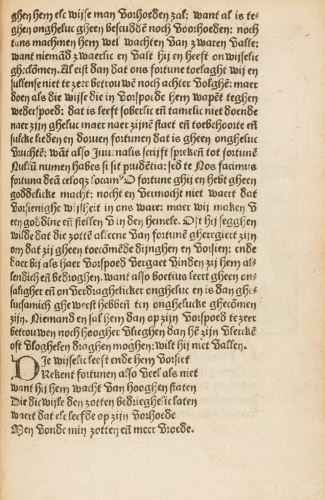 ghen hem elc wijse man Vorhoeden zal: want al is te=
ghen ongheluc gheen bescudde noch Voorhoeden: noch
tans machmen hem wel wachten Van zwaren Valle:
want niemād zwaerlic en Valt hij en heeft onwijselic
gheclōmen. Al eist dan dat ons fortune toelaght wij en
sullense niet te zeer betrouwē noch achter Volghē: maer
doen als die wijse die in Vorspoede hem wapēt teghen
wederspoed: dat is leeft soberlic eñ tamelic niet doende
naer zijn gheluc maer naer zijnē staet eñ toebehoorte eñ
sulcke lieden en dorven fortunen dat is gheen ongheluc
Vruchtē: wāt also Juuenalis scrijft sprekēt tot fortunē
Nullū numen habes si sit prudētia: sed te Nos facimus
fortuna deā celoqȝ locamꝰ O fortune ghij en hebt gheen
goddelicke macht: nocht en Vermocht niet waert dat
Vorsienighe wijsheit in ons ware: maer wij maken V
een goddine eñ stellen V in den hemele. Oft hij segghen
wilde dat die zottē alleene Van fortunē gheregiert zijn
om dat zij gheen toecōmēde dijnghen en Vorsien: ende
daer bij als haer Vorspoed Vergaet Vinden zij hem al=
lendich eñ bedroghen. Want also boetius leert gheen on=
saligheit en onVerdraghelicker onghelucc en is dan ghe=
lucsamich ghe weest hebben eñ onghelucke ghecōmen
zijn. Niemand en sal hem dan op zijn Vorspoed te zeer
betrouwen noch hoogher Vlieghen dan hē zijn Vlercke
oft Vloghelen draghen moghen: wilt hij niet Vallen.
Die wijselic leest ende hem Vorsiet
Rekent fortunen also Veel als niet
want hij hem wacht Van hooghen staten
Die dicwijle den zotten bedrieghelic laten
waert dat elc leefde op zijn Vorhoede
Men Vonde min zotten eñ meer Vroede.